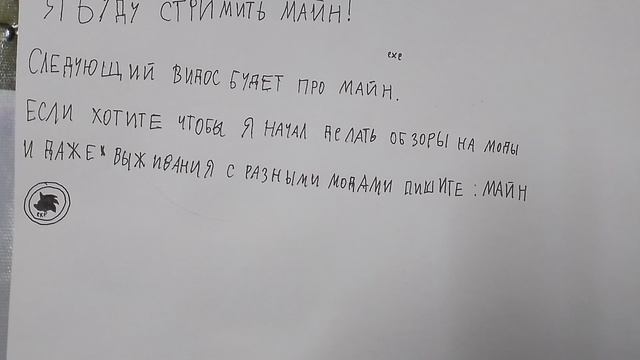 Я БУДУ СТРИМИТЬ МАЙН!
exe
СЛЕДУЮЩИЙ ВИДОС БУДЕТ ПРО МАЙН.
ЕСЛИ ХОТИТЕ ЧТОБЫ Я НАЧАЛ ДЕЛАТЬ ОБЗОРЫ НА МОДЫ
И ДАЖЕ* ВЫЖИВАНИЯ С РАЗНЫМИ МОДАМИ ПИШИТЕ : МАЙН
exe